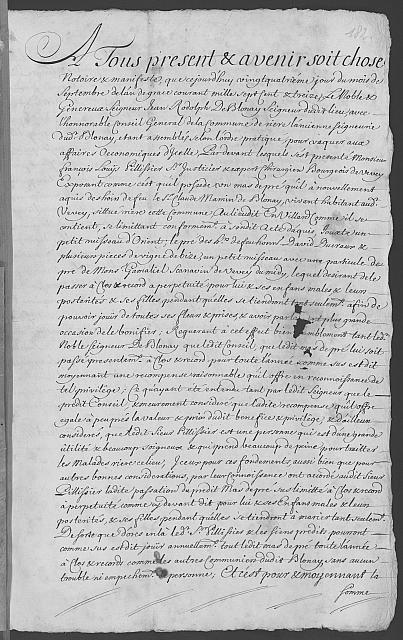 A Tous present & avenir soit chose
Notoire & manifeste, que cejourdhuy vingtquatrieme jour du mois de
Septembre de l'an de grace courant mille sept cent & treize, Le Noble &
Genereux Seigneur Jean Rodolph De Blonay Seigneur dudit lieu, avec
l'honnorable Conseil General de la Commune de riere l'ancienne Seigneurie
dud.t Blonay, etant assemblés, selon l'ordre pratiqué, pour vaquer aux
affaires Oeconomiques d'Jcelle; Pardevant lesquels s'est presenté Monsieur
François Louÿs Pillissier S.r Justicier & expert Chirurgien Bourgeois de Vevey
Exposant comme c'est qu'il possede un mas de pré, qu'il a nouvellement
aquis des hoirs de feu le S.r Claude Mamin de Blonay, vivant habitant aud.t
Vevey, sittué riere cette Commune, Au lieu dit En Villard comme il se
contient, se limittant conformement à sondit Acte d'aquis, Jouxte un
petit ruisseau d'Orient; le pré des h. de feu hon. David Ducraux &
plusieurs pieces de vigne de bize; un petit ruisseau avec une particule de
pré de Mons.r Gamaliel de Vevey du midy, lequel desirant de le
passer à Clos & record à perpetuité pour lui & ses enfans males & leurs
posterités & ses filles pendant qu'elles se tiendront tant seulem.t afin de
pouvoir jouïr de toutes ses fleurs & prises & avoir par plus grande
occasion de le bonifier; Requerant à cet effect bien humblement tant led.t
Noble Seigneur De Blonay que ledit Conseil, que ledit mas de pré lui soit
passé presentem.t à Clos & record, pour toutte l'année comme sus est dit
moyennant une recompense raisonnable qu'il offre en reconnoissance de
tel privilege; Ce qu'ayant eté entendu tant par ledit Seigneur que le
predit Conseil & meurement consideré que ladite recompense qu'il offre
egale à peu près la valeur & prix dudit benefice & privilege, & d'ailleurs
considerés, que ledit Sieur Pillissier est une personne qui est d'une grande
utilité & beaucoup soigneux & qui prend beaucoup de peine pour traitter
les Malades riere ce lieu, Jceux pour ces fondements, aussi bien que pour
autres bonnes considerations, par leur connoissance ont acordé audit Sieur
Pillissier ladite passation du predit Mas de pré sus limitté à Clos & record
à perpetuité comme cy devant dit pour lui & ses Enfans males & leur
posterités & ses filles pendant qu'elles se tiendront à marier tant seulem.t
De sorte que d'ores en là led.t S.r Pillissier & les siens predits pourront
comme sus est dit jouïr annuellem.t tout ledit mas de pré toutte l'année
à Clos & records comme les autres Communiers dudit Blonay sans aucun
trouble ni empechem.t de personne, Et c'est pour & moyennant la
somme